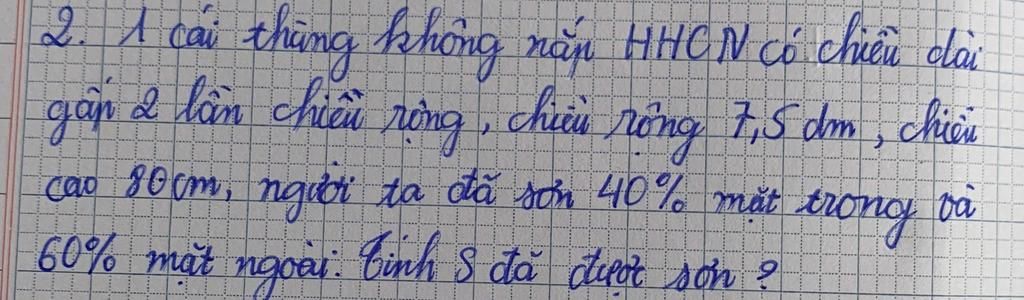 2. 1 cái thùng không nắp HHCN có chiều dài
gấp 2 lần chiều rộng, chiều rộng 7,5 dm, chiều
cao 80cm, người ta đã sơn 40% mặt trong và
60% mặt ngoài. Tính S đã được sơn?